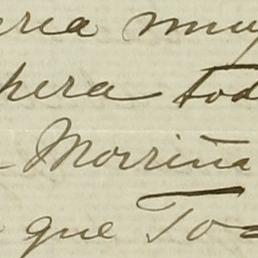 eria muy
pera tod
Morriña
que Toc